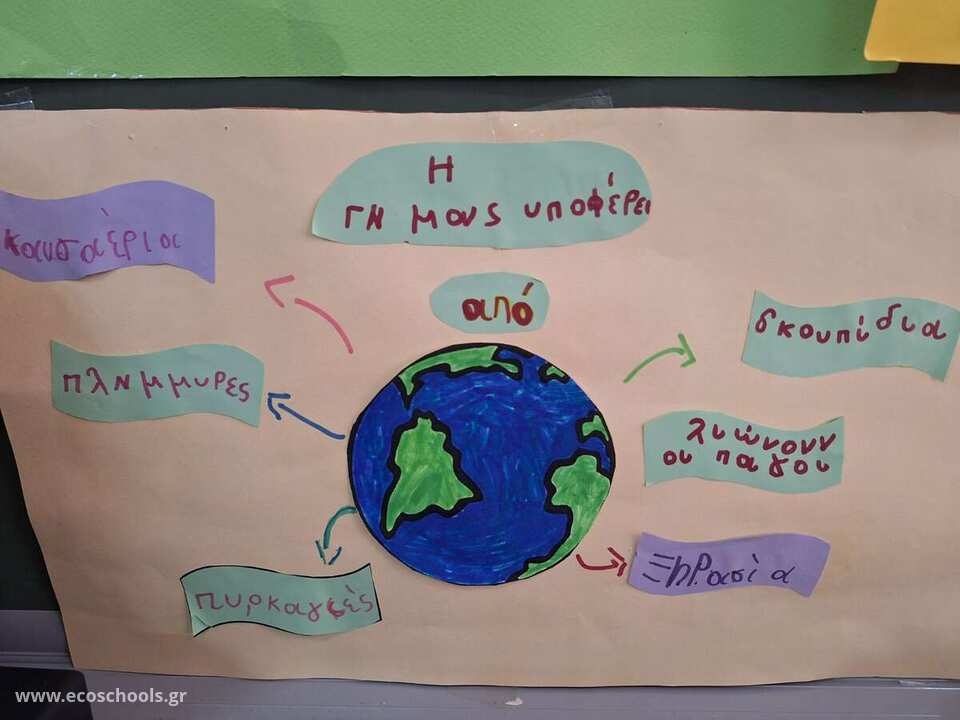 Η
γη μους υποφέρει
από
καυσαέρια
πλημμυρες
πυρκαγιές
σκουπίδια
λιώνουν
οι παγοι
Ξηρασία
www.ecoschools.gr